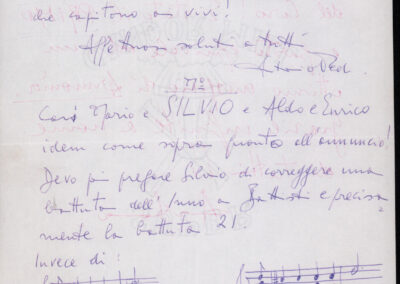 che capitano ai vivi!
Affettuosi saluti a tutti
Antonio Ved.
Cari Mario e SILVIO e Aldo e Enrico
idem come sopra quanto all'annuncio!
Devo poi pregare Silvio di correggere una
battuta dell'Inno a Battisti e precisa
mente la battuta 21.
Invece di: